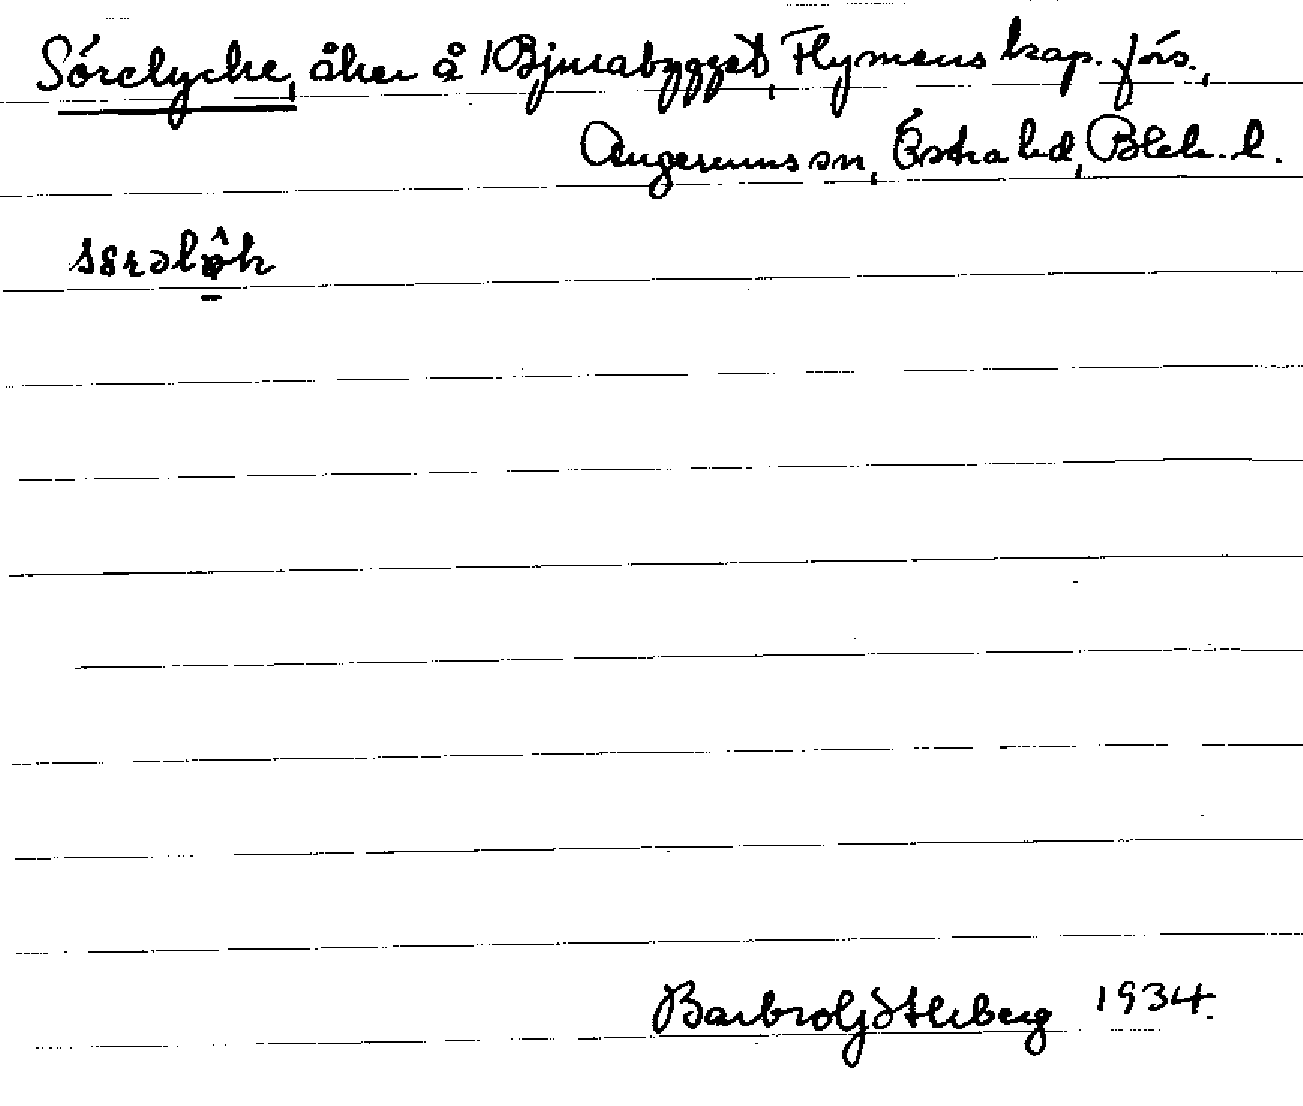 Sörelycke, åker å 1 Bjurabygget, Flymens kap. förs.,
Augerums sn, Östra hd, Blek. l.
Barbro Ljótleberg 1934.